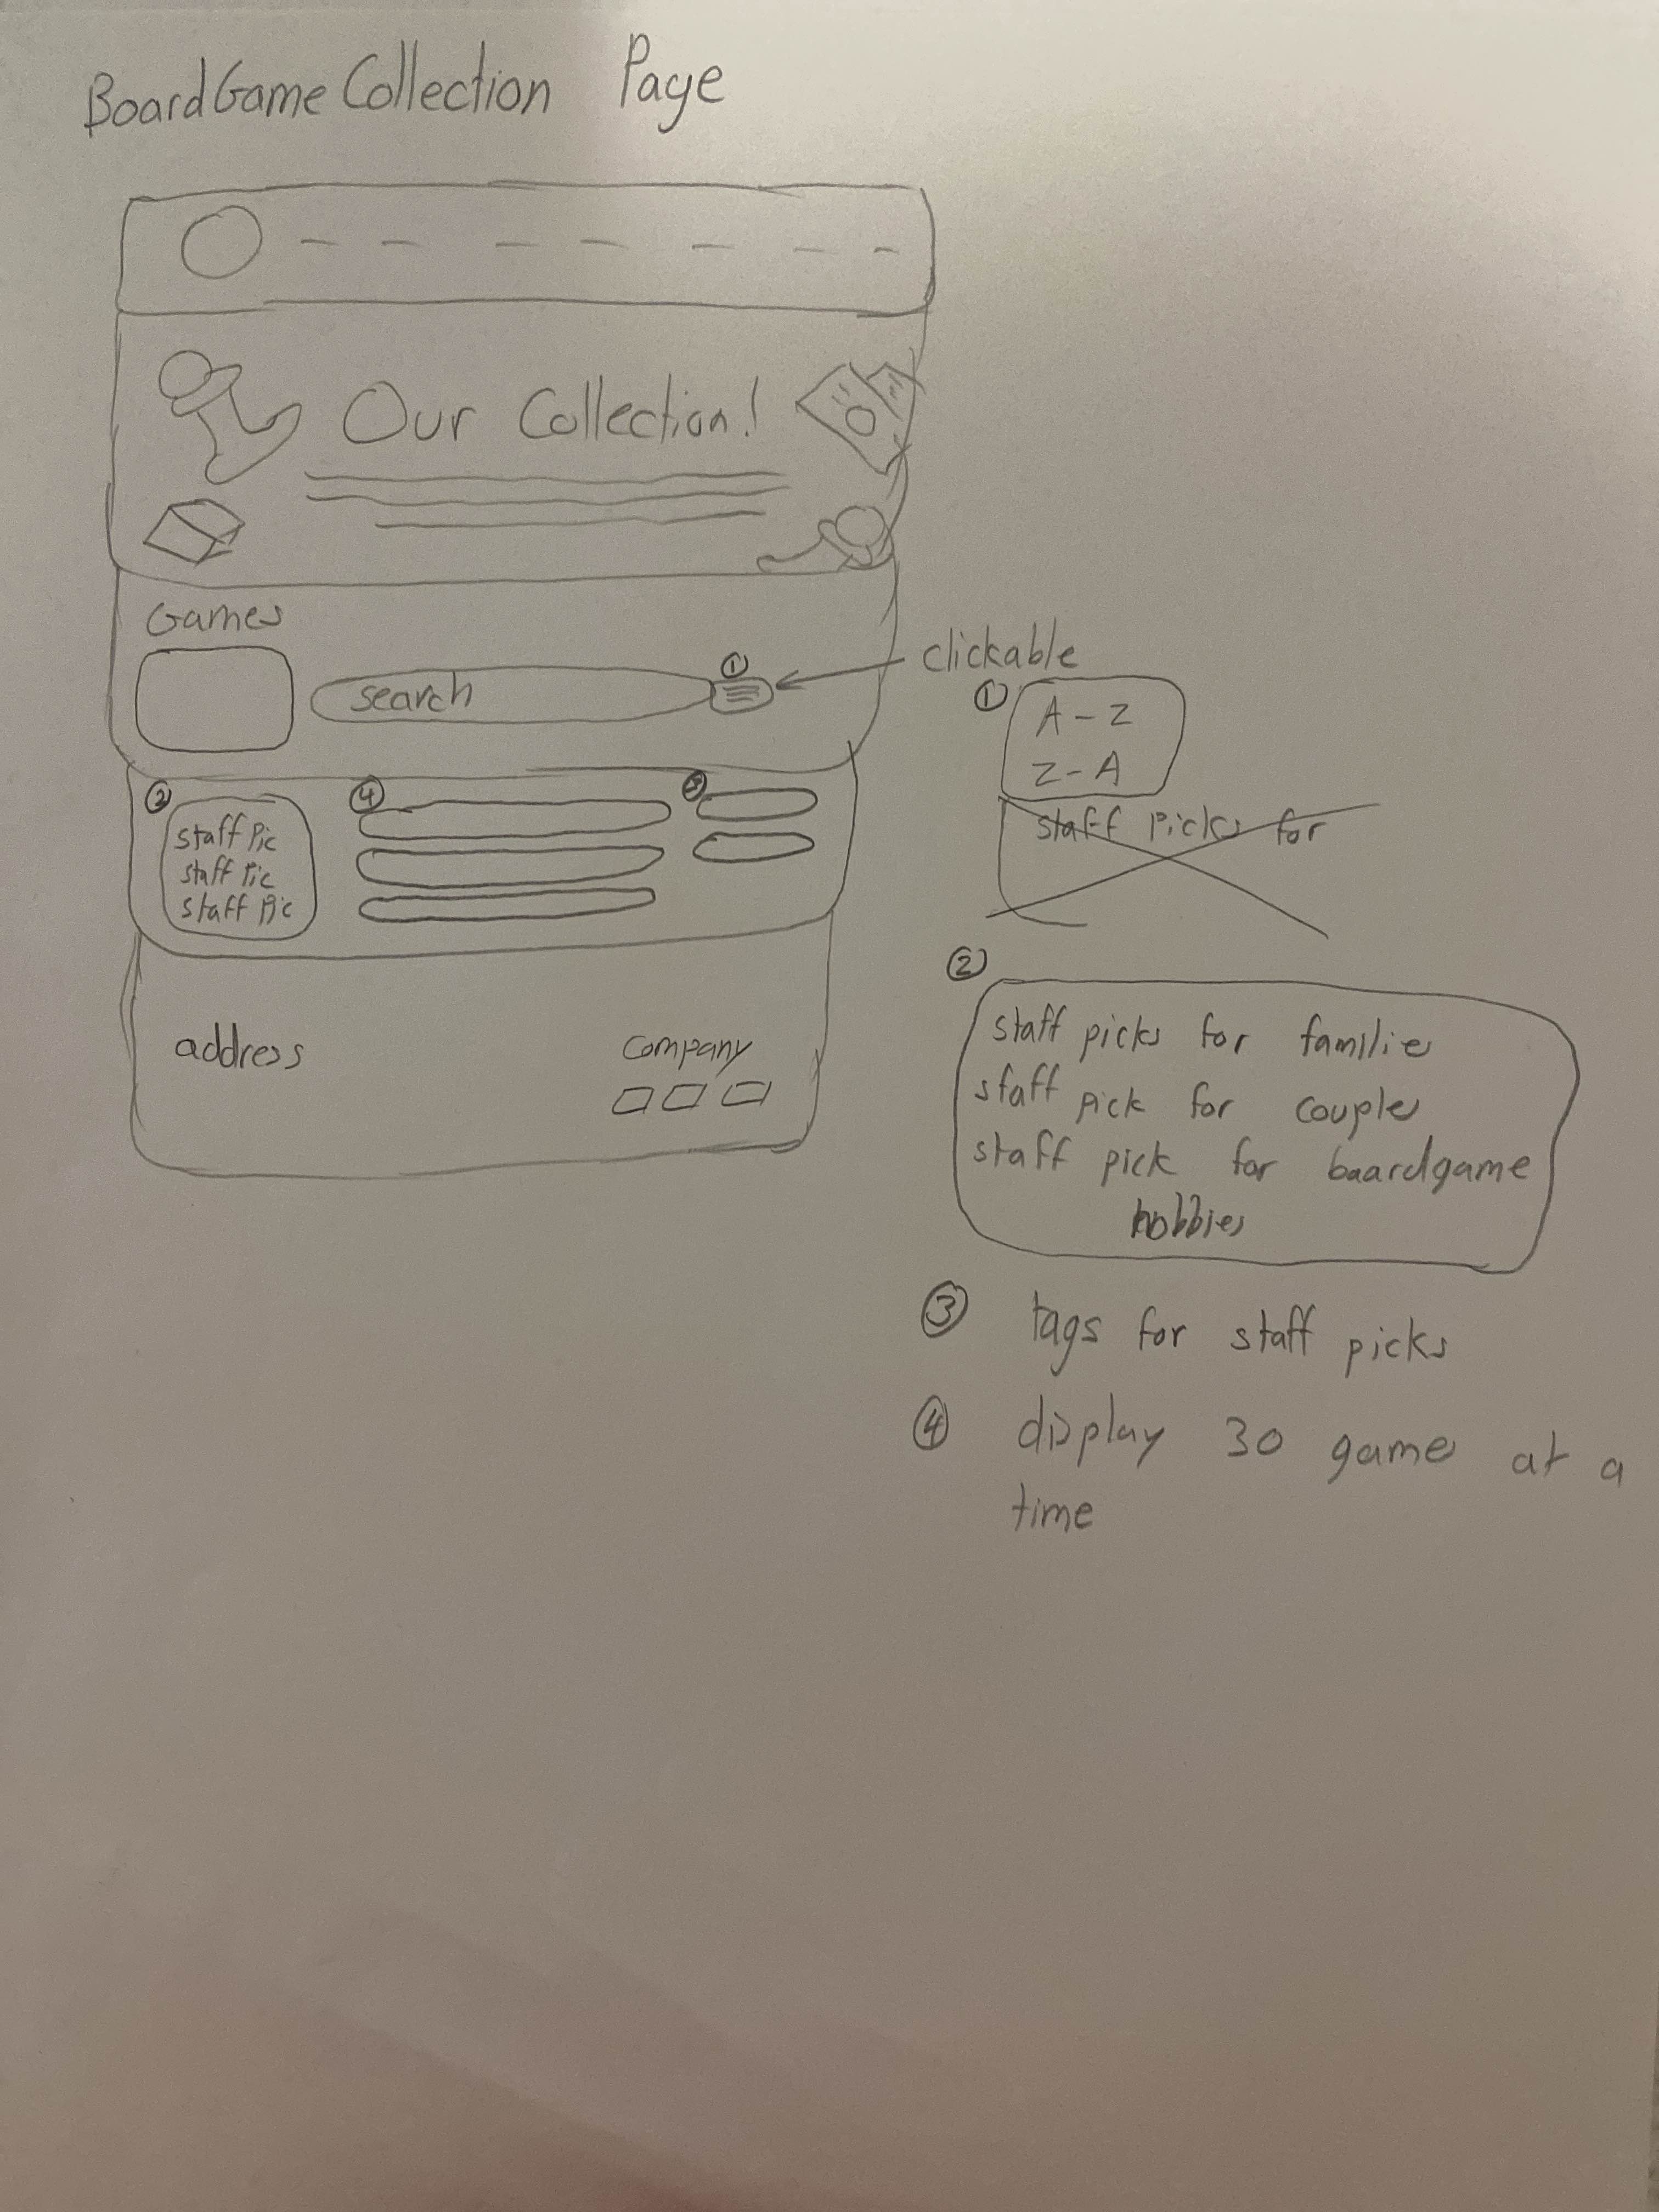 BoardGame Collection Page
Our Collection!
Games
search
①
clickable
① A - Z
Z - A
staff Picks for
②
staff Pic
staff Pic
staff Pic
④
③
address
company
②
staff picks for familie
staff pick for couple
staff pick for boardgame
hobbies
③ tags for staff picks
④ display 30 game at a
time